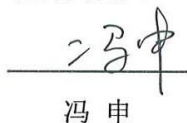 冯申
冯 申